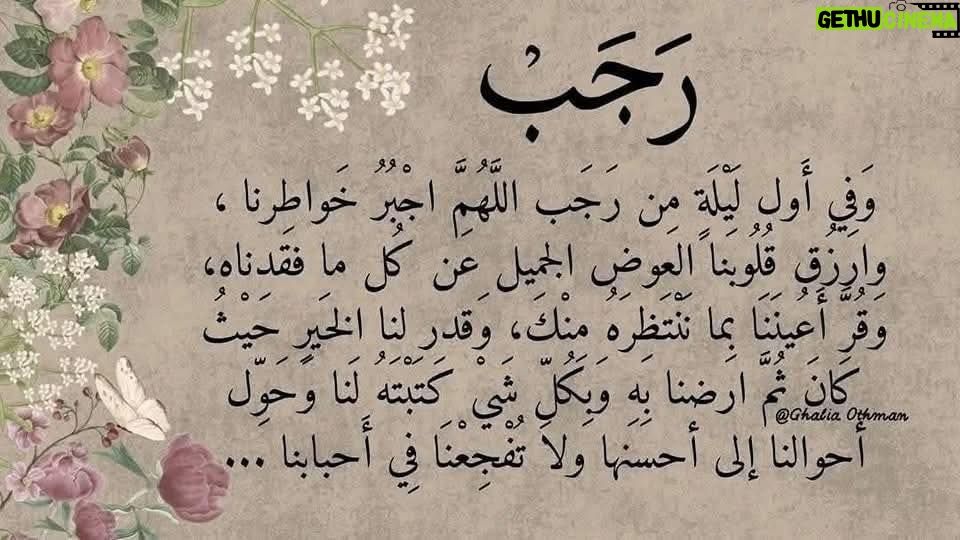 GETHUCINEMA
رَجَبْ
وَفِي أَول لَيْلَةٍ مِن رَجَب اللَّهُمَّ اجْبُرُ خَواطِرنا ،
وارِزُق قُلُوبَناً العِوضَ الجميل عَن كُل ما فقدناه،
وَقُرَّ أَعيُنَنَا بِما نَنْتَظِرَهُ منْكَ، وَقدر لنا الخَيرٍ حَيْثُ
كَانَ ثُمَّ ارضنا بِهِ وَبَكُلِّ شَيْ كَتَبْتَهُ لَنا وحَوِّل
@Ghalia Othman
أحوالنا إلى أحسنها ولا تُفْجِعْنَا فِي أَحبابنا ...